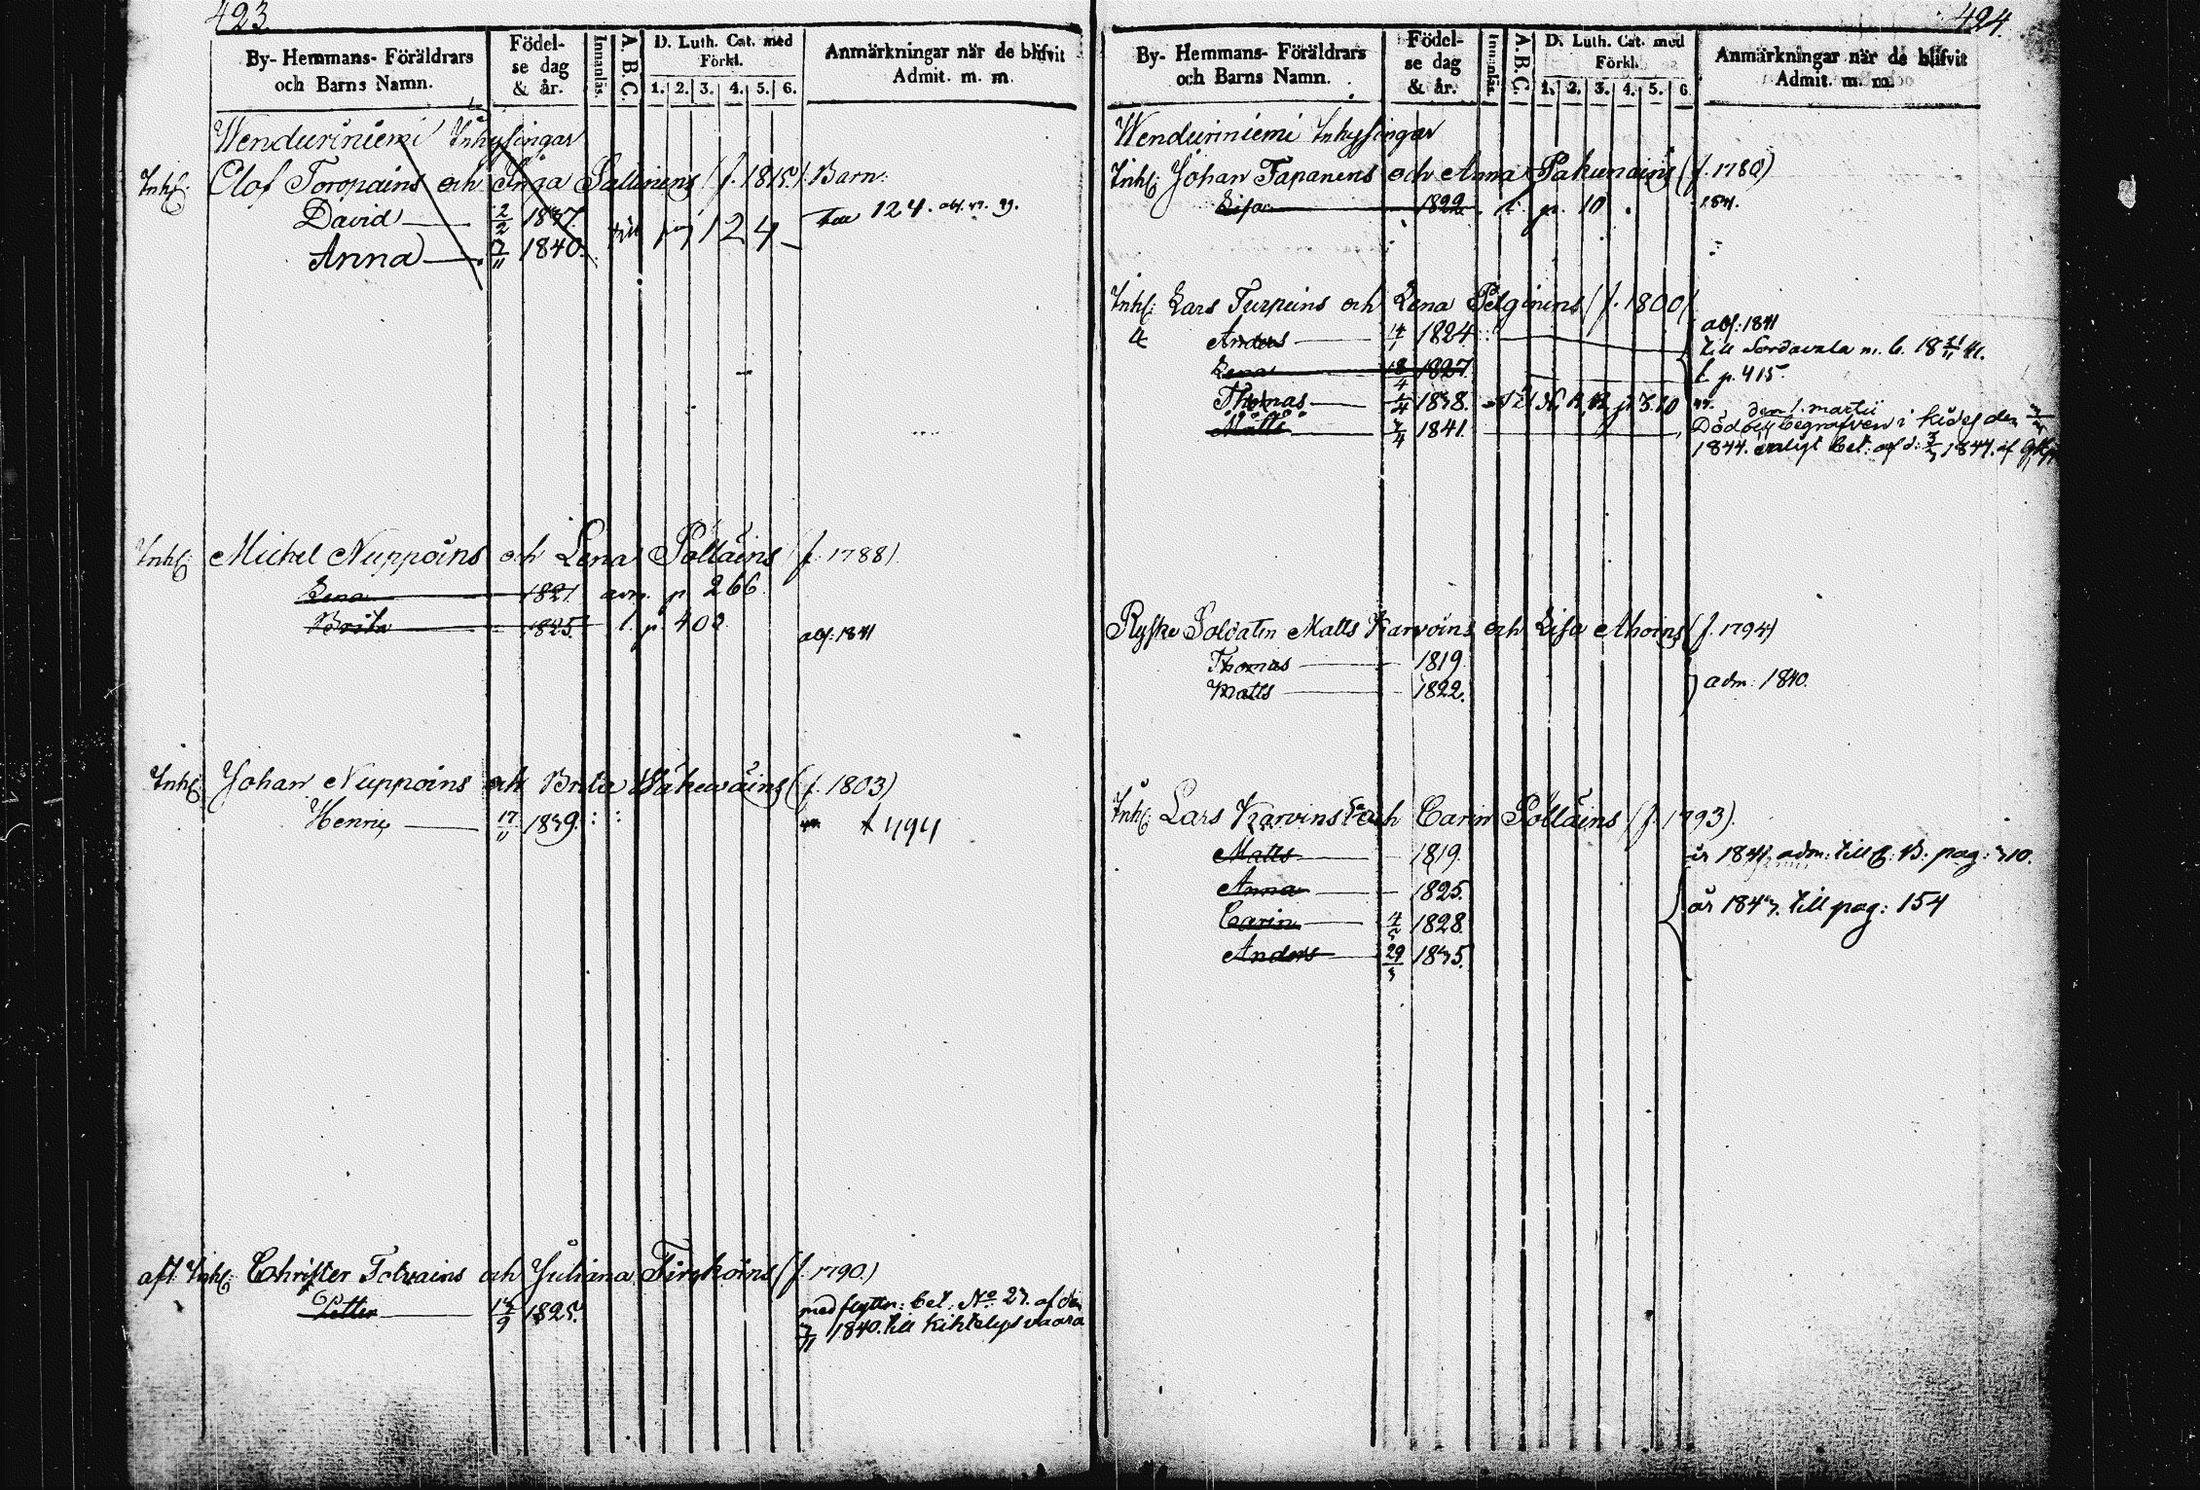 423.
By- Hemmans- Föräldrars och Barns Namn.
Födelse dag & år.
Innanläs.
A.B.C.
D. Luth. Cat. med Förkl.
1. 2. 3. 4. 5. 6.
Anmärkningar när de blifvit Admit. m. m.
Wenduriniemi Inhysingar
Inh: Olof Toropains och Inga Sallinens (f. 1815) Barn:
David 2/2 1837. till p 124
Anna 1840.
124.
Inh: Michel Nuppoins och Lena Pöllains (f. 1788).
Lena 1821 adm. p. 266
Brita 1825. l. p. 400 abs: 1841
Inh: Johan Nuppoins och Brita Wäkewäins (f. 1803)
Henric 17/11 1839. 494
afl. Inh: Christer Tolvains och Juliana Tirrköins (f. 1790.)
Petter 13/9 1825. med flyttn: bet. No 23. af den
7/11 1840. till Kihtelysvaara
424.
By- Hemmans- Föräldrars och Barns Namn.
Födelse dag & år.
Innanläs.
A.B.C.
D. Luth. Cat. med Förkl.
1. 2. 3. 4. 5. 6.
Anmärkningar när de blifvit Admit. m. m.
Wenduriniemi Inhysingar
Inh: Johan Tapanens och Anna Pakunains (f. 1780)
Lisa 1822. l. p. 10. 1841.
Inh: Lars Turpeins och Lena Pelginens (f. 1800)
Anders 1824 abs: 1841
till Sordavala m. b.
Lena 18/4 1827. l p. 415.
Thomas 1838.
den 1. martii
Matts 7/4 1841. Död och begrafven i Kides den
1844. enligt bet: af d: 1844. af
Ryske Soldaten Matts Karvoins och Lisa Ahoins (f. 1794)
Thomas 1819.
Matts 1822. adm: 1840.
Inh: Lars Karvins och Carin Pöllains (f. 1793).
Matts 1819. adm: till pag: 310.
Anna 1825.
Carin 4/5 1828. år 1843. till pag: 154
Anders 29/3 1835.